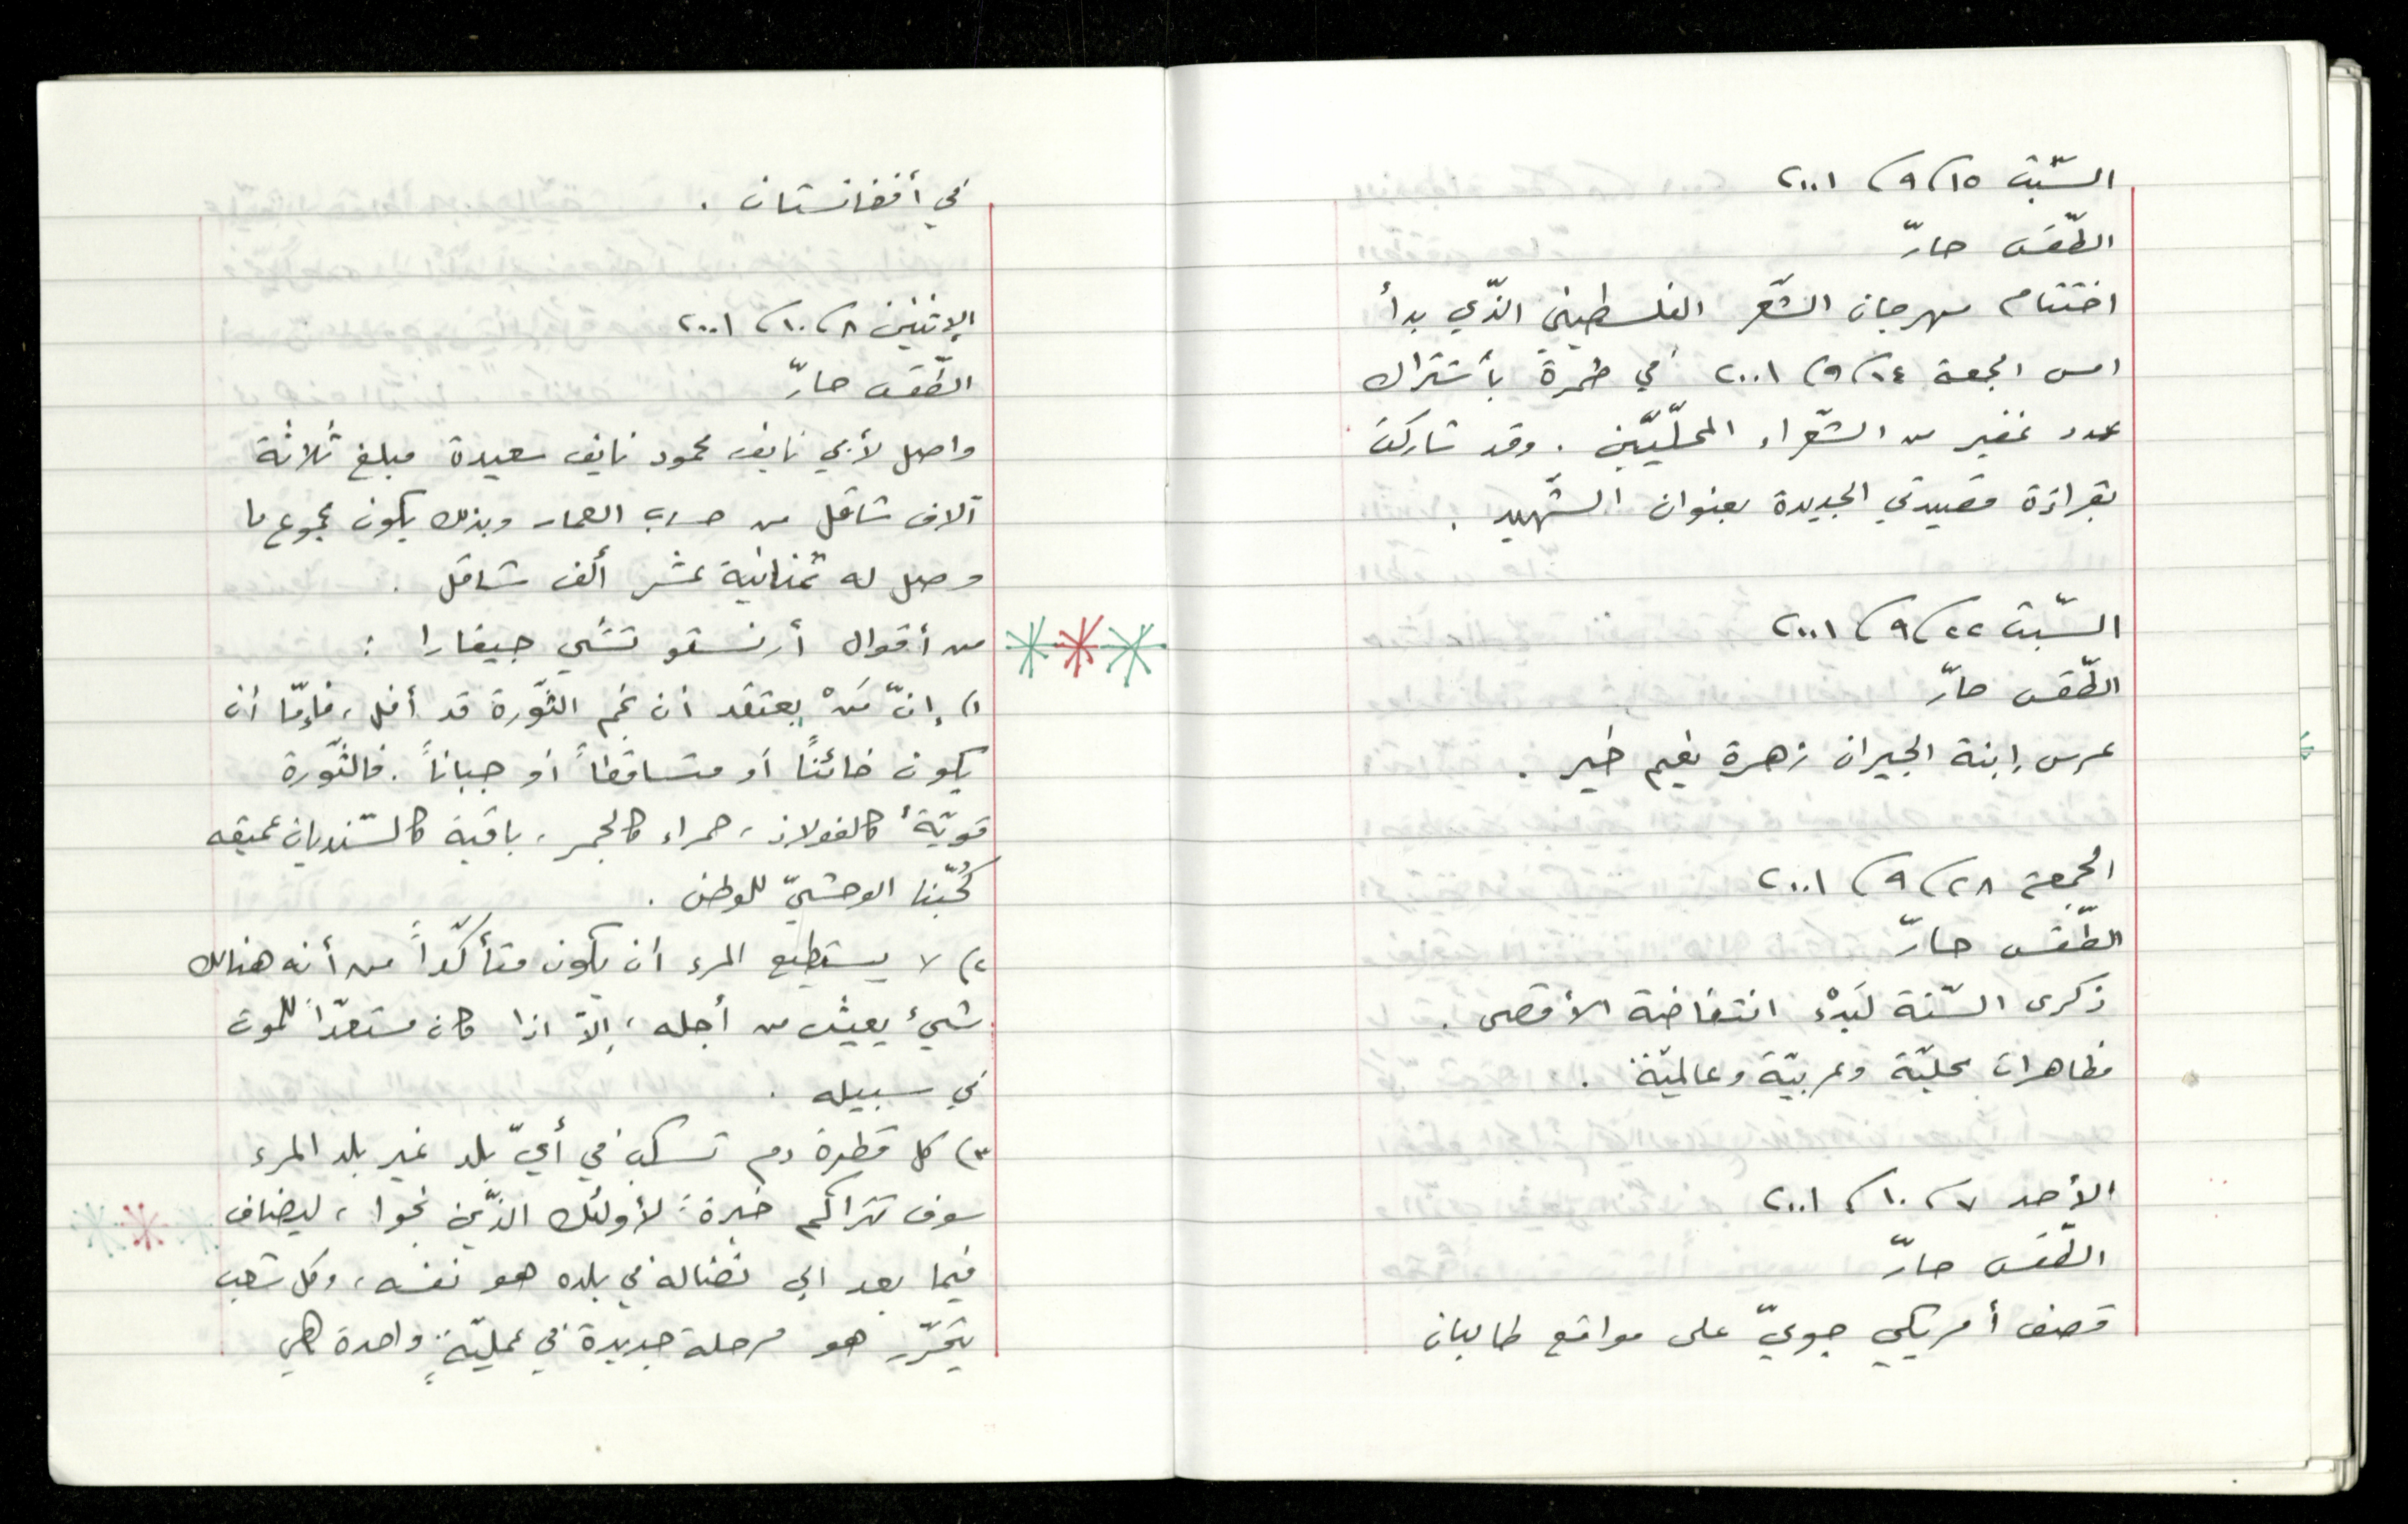 السّبت ١٥/ ٩/ ٢٠٠١
الطّقس حارّ
اختتام مهرجان الشّعر الفلسطيني الذّي بدأ
امس الجمعة ١٤/ ٩/ ٢٠٠١ في طمرة بأشتراك
عدد غفير من الشّعراء المحلّيّين . وقد شاركت
بقراءة قصيدتي الجديدة بعنوان الشّهيد .
السّبت ٢٢/ ٩/ ٢٠٠١
الطّقس حارّ
عرس إبنة الجيران زهرة نعيم خير .
الجمعة ٢٨/ ٩/ ٢٠٠١
الطّقس حارّ
ذكرى السّنة لبَدْء انتفاضة الأقصى .
مظاهرات محليّة وعربيّة وعالميّة .
الأحد ٧/ ١٠/ ٢٠٠١
الطّقس حارّ
قصف أمريكي جويّ على مواقع طالبان
في أفغانستان .
الإثنين ٨/ ١٠/ ٢٠٠١
الطّقس حارّ
واصل لأبي نايف محمود نايف سعيدة مبلغ ثلاثة
آلاف شاقل من حساب العمار وبذلك يكون مجموع ما
وصل له ثمانية عشر ألف شاقل .
من أقوال أرنستو تشي جيفارا :
١) إنّ مَنْ يعتقد أن نجم الثّورة قد أفل ، فإمّا أن
يكون خائنًا أو متساقطاً أو جباناً . فالثّورة
قويّة كالفولاذ ، حمراء كالجمر ، باقية كالسّنديان عميقه
كُحبّنا الوحشيّ للوطن .
٢) لا يستطيع المرء أن يكون متأكّداً من أنه هنالك
شيء يعيش من أجله ، إلاّ اذا كان مستعدّاً للموت
في سبيله .
٣) كل قطرة دم تسكب في أيّ بلد غير بلد المرء
سوف تتراكم خبرة لأولئك الذّين نجوا ، ليضاف
فيما بعد الى نضاله في بلده هو نفسه ، وكل شعب
يتحرّر هو مرحلة جديدة في عمليّةٍ واحدة هي